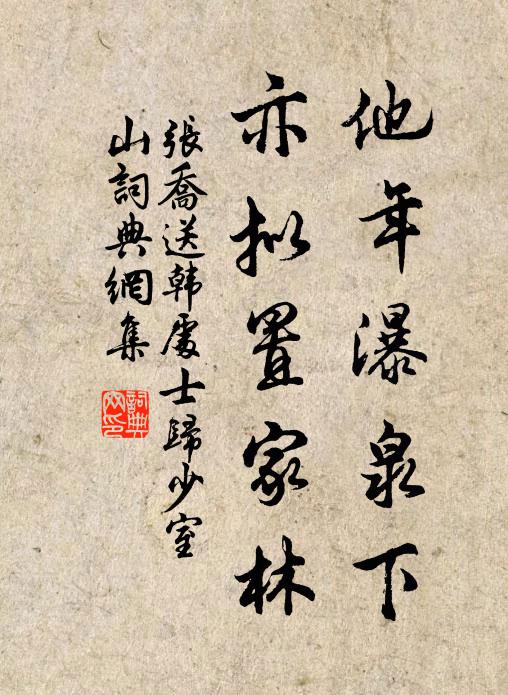 他年瀑泉下
亦拟置家林
張喬送韩處士歸少室
山詞典網集
詞典网印